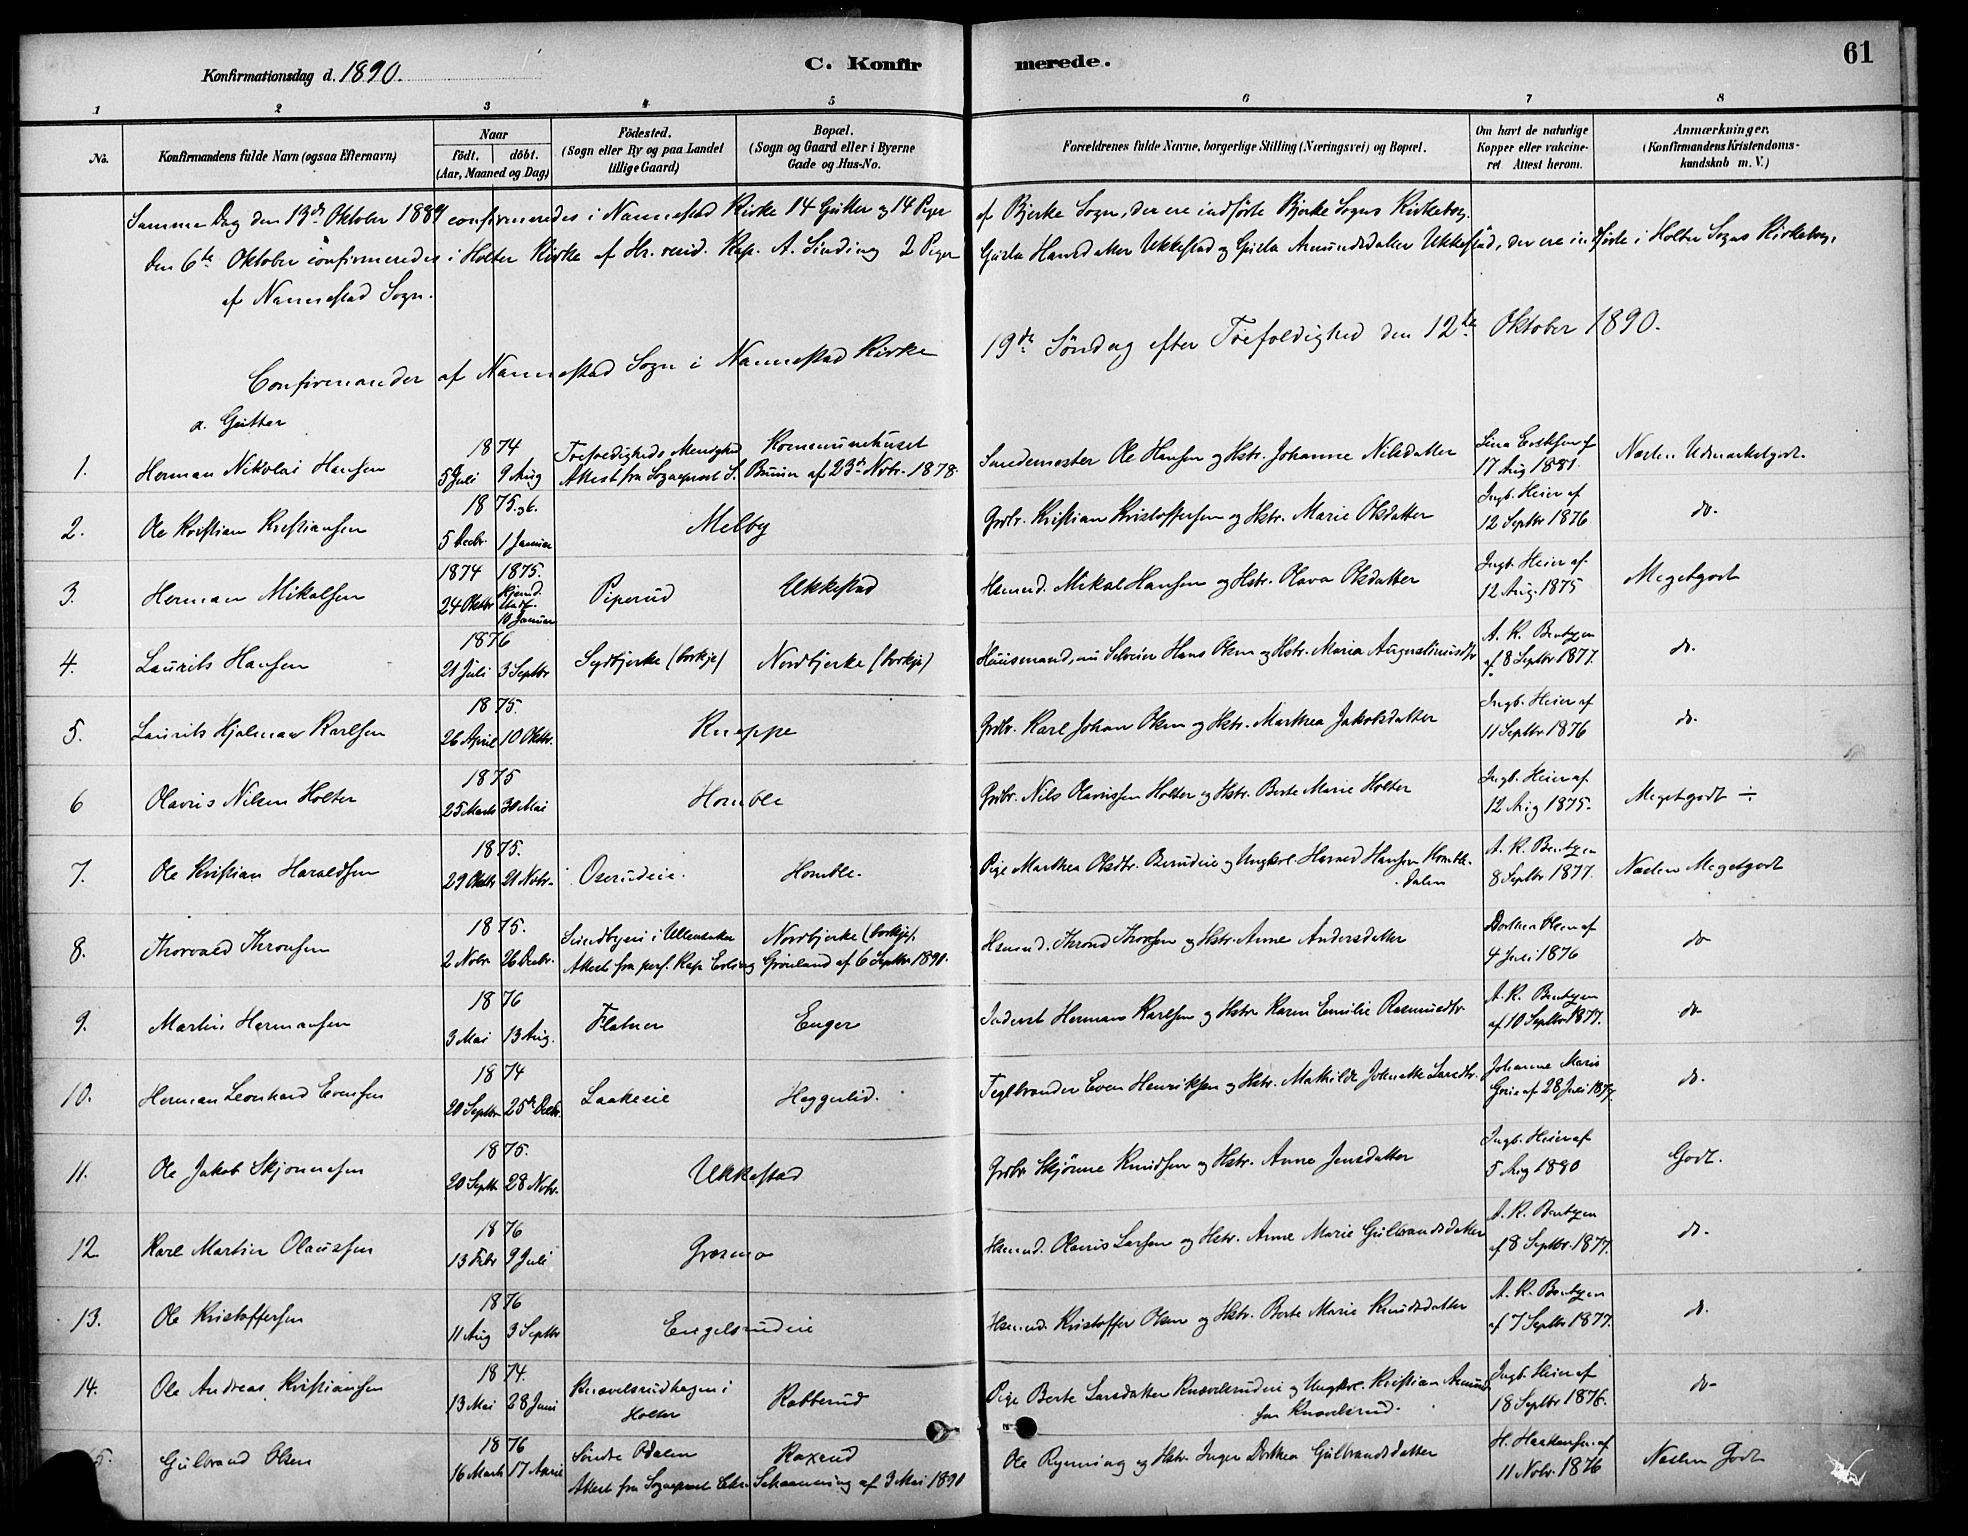 61
Konfirmationsdag d. 1890.
C. Konfirmerede.
1 2 3 4 5 6 7 8
No.
Konfirmandens fulde Navn (ogsaa Efternavn)
Naar
födt. döbt.
(Aar, Maaned og Dag)
Födested.
(Sogn eller By og paa Landet
tillige Gaard)
Bopæl.
(Sogn og Gaard eller i Byerne
Gade og Hus-No.
Forældrenes fulde Navne, borgerlige Stilling (Næringsvei) og Bopæl.
Om havt de naturlige
Kopper eller vakcine-
ret Attest herom.
Anmærkninger.
(Konfirmandens Kristendoms-
kundskab m. V.)
Samme Dag den 13de Oktober 1889 confirmeredes i Nannestad Kirke 14 Gutter og 14 Piger af Bjerke Sogn, der ere indförte Bjerke Sogns Kirkebog.
Den 6te Oktober confirmeredes i Holter Kirke af Hr. resid. Kap. A. Sinding 2 Piger Gusta Hansdatter Ukkestad og Gusta Amundsdatter Ukkestad, der ere indförte i Holter Sogns Kirkebog.
af Nannestad Sogn.
Confirmander af Nannestad Sogn i Nannestad Kirke 19de Söndag efter Trefoldighed den 12te Oktober 1890.
a. Gutter
1. Herman Nikolai Hansen 1874 5 Juli 9 Aug Trefoldigheds Menighed Kommunehuset
Attest fra Sogneprest S. Bruun af 23de Nobr. 1878
Sandemester Ole Hansen og Hstr. Johanne Nilsdatter
17 Aug 1881. Næsten Udmærketgodt
2. Ole Kristian Kristiansen 1875. 76. 5 Decbr. 1 Januar Melby
Grdbr. Kristian Kristoffersen og Hstr. Marie Olsdatter Ingb. Heier af 12 Septbr 1876 do.
3. Herman Mikalsen 1874 24 Oktbr 1875. 10 Januar Piperud Ukkestad
Hsmd. Mikal Hansen og Hstr. Olava Olsdatter Ingb. Heier af 12 Aug. 1875 Megetgodt
4. Laurits Hansen 1876 21 Juli 3 Septbr Sydbjerke (borkje) Nordbjerke (borkje)
Huusmand, nu Selveier Hans Olsen og Hstr. Maria Augustinusdtr A. K. Bentzen af 8 Septbr 1877. do.
5. Laurits Hjalmar Karlsen 1875. 26 April 10 Oktbr. Kneppe
Grdbr. Karl Johan Olsen og Hstr. Marthea Jakobsdatter Ingb. Heier af 11 Septbr 1876 do.
6 Olavus Nilsen Holter 1875 25 Marts 30 Mai Homble
Grdbr. Nils Olavussen Holter og Hstr. Berte Marie Holter Ingb. Heier af 12 Aug 1875. Megetgodt ÷
7. Ole Kristian Haraldsen 1875. 29 Oktbr 21 Nobr. Oserudeie. Homble.
Pige Marthea Olsdtr. Oserudeie og Ungkrl. Harald Hansen Hombledalen A. K. Bentzen 8 Septbr 1877. Næsten Megetgodt
8. Thorvald Thronsen 1875. 2 Nobr. 26 Decbr. Sundbyeie i Ullensaker Nordbjerke (borkje).
Attest fra pers. Kap. Erling Grönland af 6 Septbr 1890.
Hsmd. Thrond Thorsen og Hstr. Anne Andersdatter Dorthea Olsen af 4 Juli 1876 do
9. Martin Hermansen 1876 3 Mai 13 Aug. Flatner Enger
Inderst Herman Karlsen og Hstr Karen Emilie Rasmusdtr. A. K. Bentzen af 10 Septbr 1877. do
10. Herman Leonhard Evensen 1874 20 Septbr 25de Decbr. Laakeeie Heggerlid.
Teglbrænder Even Henriksen og Hstr. Mathilde Johnette Larsdtr. Johanne Marie af 28 Juli 1877. do.
11. Ole Jakob Skjönnesen 1875. 20 Septbr 28 Nobr. Ukkestad
Grdbr Skjönne Knudsen og Hstr. Anne Jensdatter Ingb. Heier af 5 Aug 1890 Godt.
12 Karl Martin Olaussen 1876 13 Febr 9 Juli Græsmo
Hsmd. Olavus Larsen og Hstr. Anne Marie Gulbrandsdatter A. K. Bentzen af 8 Septbr. 1877. do.
13. Ole Kristoffersen 1876 11 Aug 3 Septbr Engelsrudeie
Hsmd. Kristoffer Olsen og Hstr. Berte Marie Knudsdatter A. K. Bentzen af 7 Septbr 1877. do.
14. Ole Andreas Kristiansen 1874. 13 Mai 28 Juni Knævelsrudhagen i Holter Rabberud
Pige Berte Larsdatter Knævelsrudeie og Ungkrl. Kristian Amundsen Knævelsrud. Ingb. Heier af 18 Septbr 1876. do
5. Gulbrand Olsen 1876 16 Marts 17 April Söndre Odalen Raxrud
Attest fra Sogneprest Chr. Schanning af 9 Mai 1890
Ole Rynning og Hstr. Inger Dorthea Gulbrandsdatter H. Haakensen af 11 Nobr. 1876 Næsten Godt